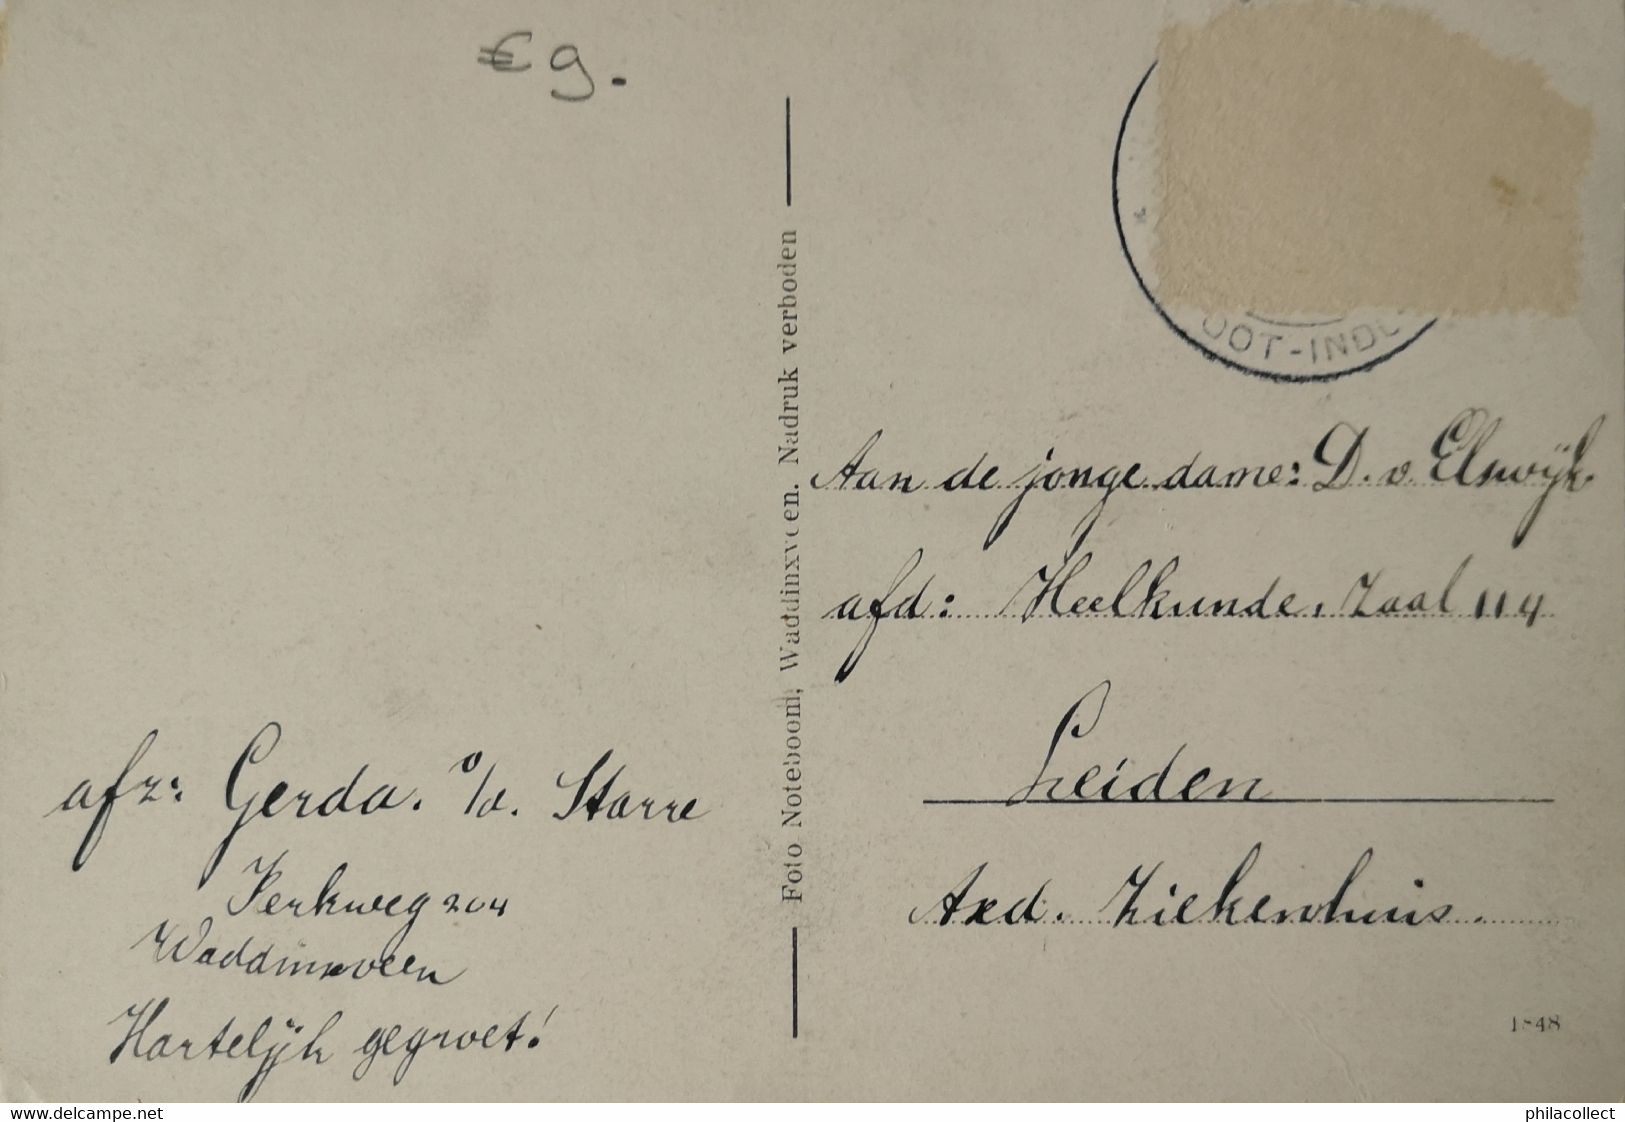 € 9.
OOT-INDU
Foto Noteboom, Waddinxveen. Nadruk verboden
Aan de jonge dame: D. v. Elswijk
afd: Heelkunde. Zaal 114
Leiden
Axd. Ziekenhuis.
afz: Gerda. v/d. Starre
Kerkweg 204
Waddinxveen
Hartelijk gegroet!
delcampe.net
philacollect